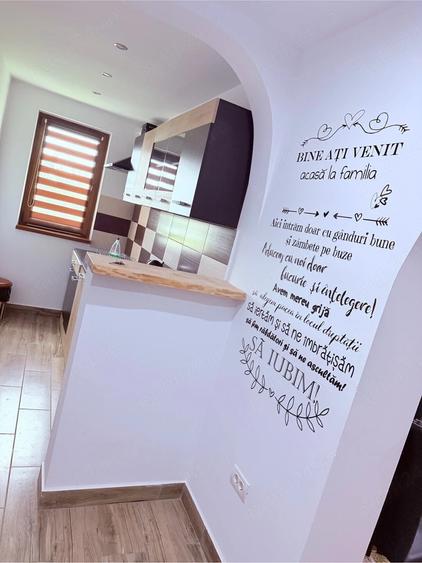 BINE AȚI VENIT
acasă la familia
Aici intrăm doar cu gânduri bune
și zâmbete pe buze
Aducem cu noi doar
bucurie și înțelegere!
Avem mereu grijă
să alegem pacea în locul dreptății
să iertăm și să ne îmbrățișăm
să fim răbdători și să ne ascultăm!
SĂ IUBIM!